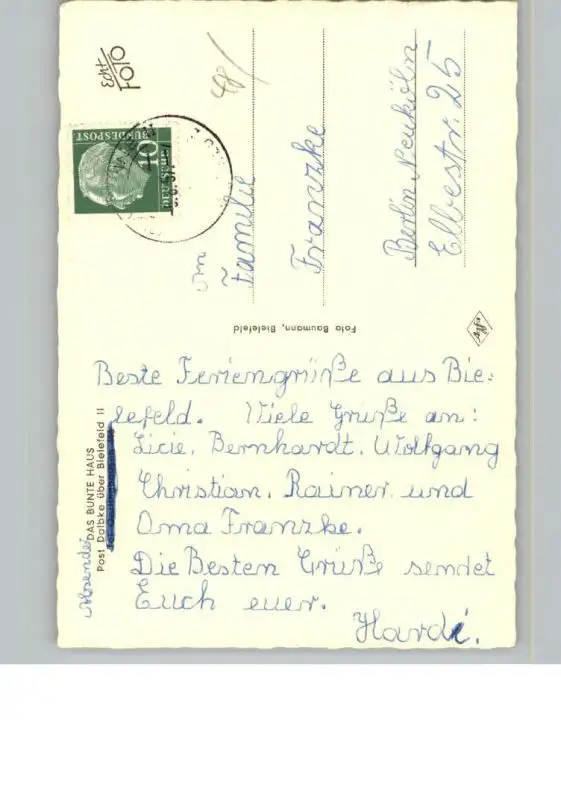 Echt
FOTO
BUNDESPOST
10
48/
An
Familie
Franzke
Berlin Neukölln
Elbestr. 25
Foto Baumann, Bielefeld
Agfa
Beste Feriengrüße aus Bie=
lefeld. Viele Grüße an:
Licie, Bernhardt, Wolfgang
Christian, Rainer und
Oma Franzke.
Die Besten Grüße sendet
Euch euer.
Hardi.
Absender
DAS BUNTE HAUS
Post Dalbke über Bielefeld II